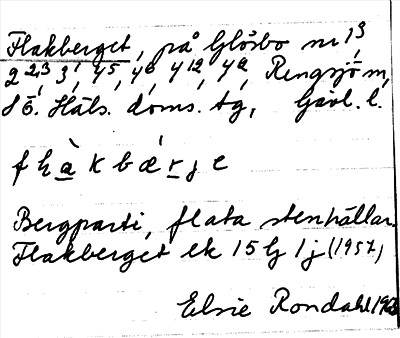 Flakberget, på Glösbo nr 1³,
2²,³ 3¹, 4⁵, 4⁶ 4¹², 4⁹, Rengsjö sn,
S Ö. Häls. doms. tg, Gävl. l.
f h à k b æ̀ r j e
Bergparti, flata stenhällar.
Flakberget ek 15 G 1 j (1957)
Elsie Rondahl